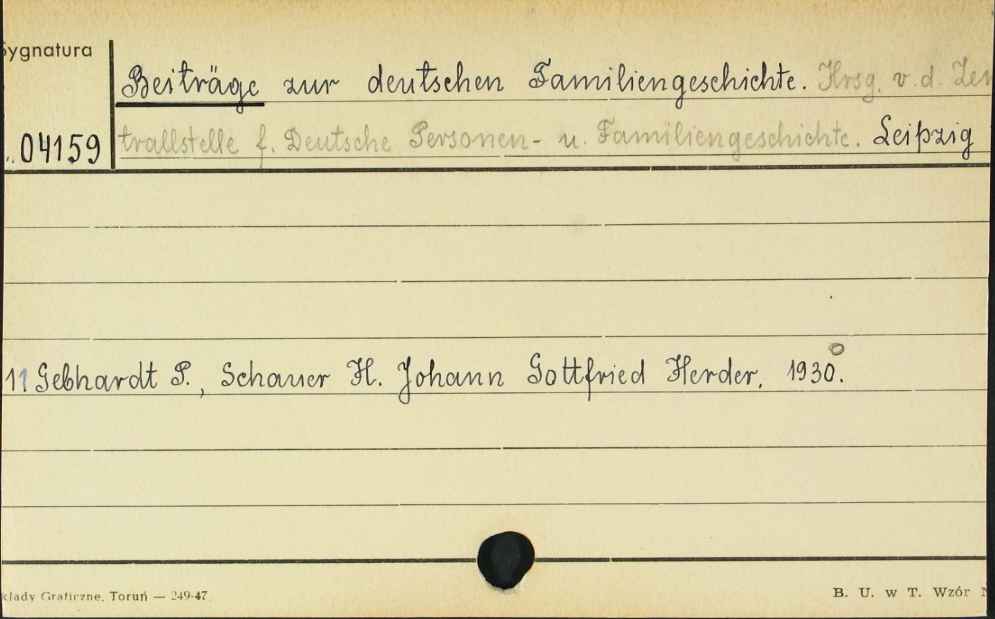 Sygnatura
Beiträge zur deutschen Familiengeschichte. Hrsg. v. d. Zen
04159 trallstelle f. Deutsche Personen- u. Familiengeschichte. Leipzig
11 Gebhardt P., Schauer H. Johann Gottfried Herder, 1930.
kłady Graficzne, Toruń — 249-47
B. U. w T. Wzór N